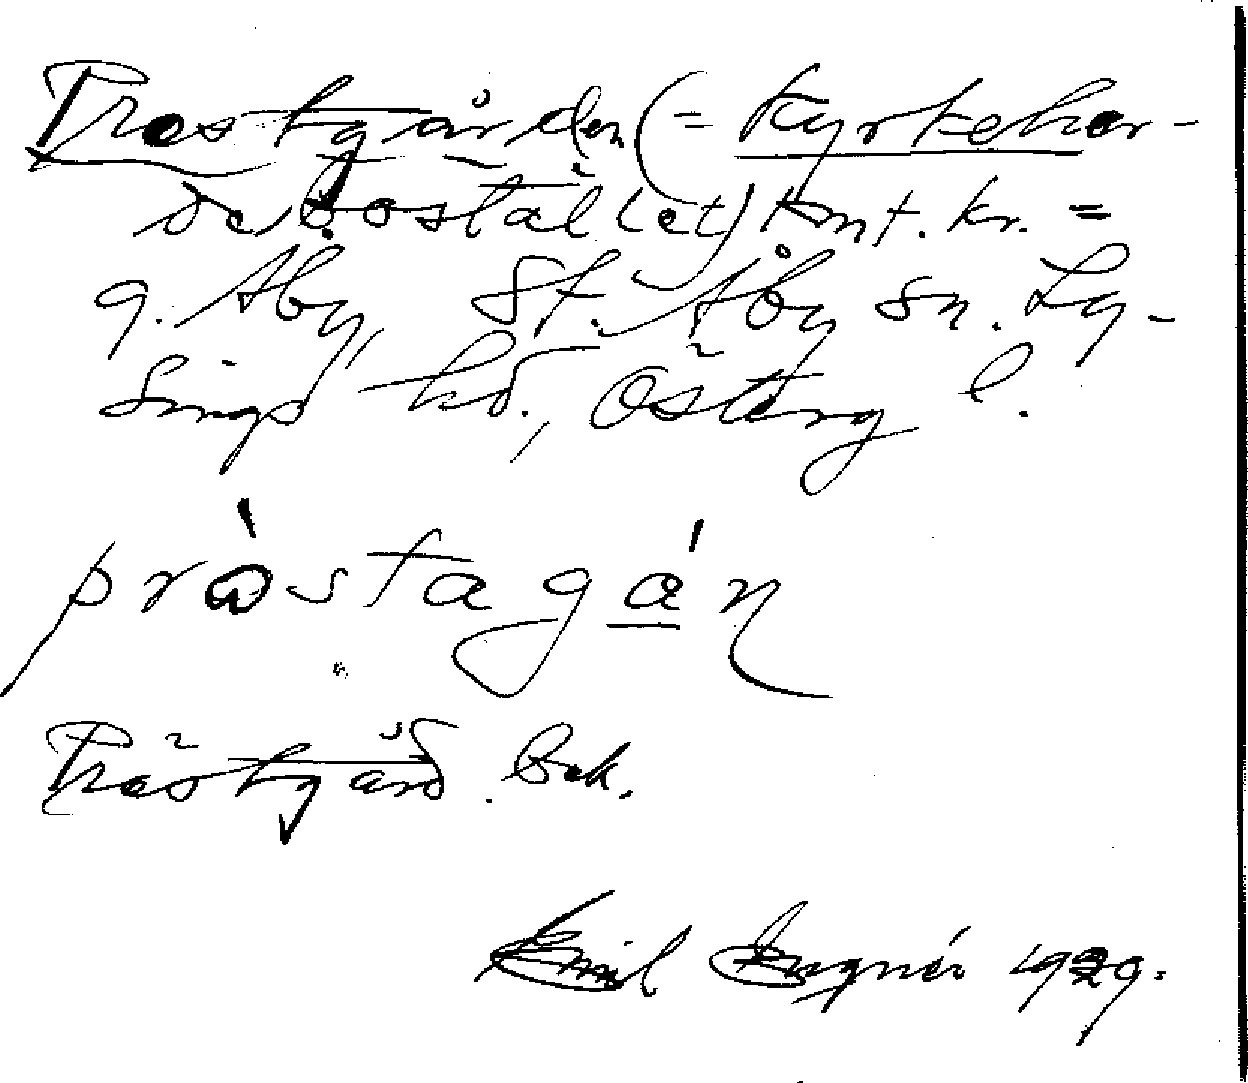 Prästgården (= Kyrkoher-
debostäl(et) Knt. kr. =
g. Åby, St. Åby sn. Ly-
sings hd., Österg l.
pròstagán
Prästgård. Bek.
Emil 1929.